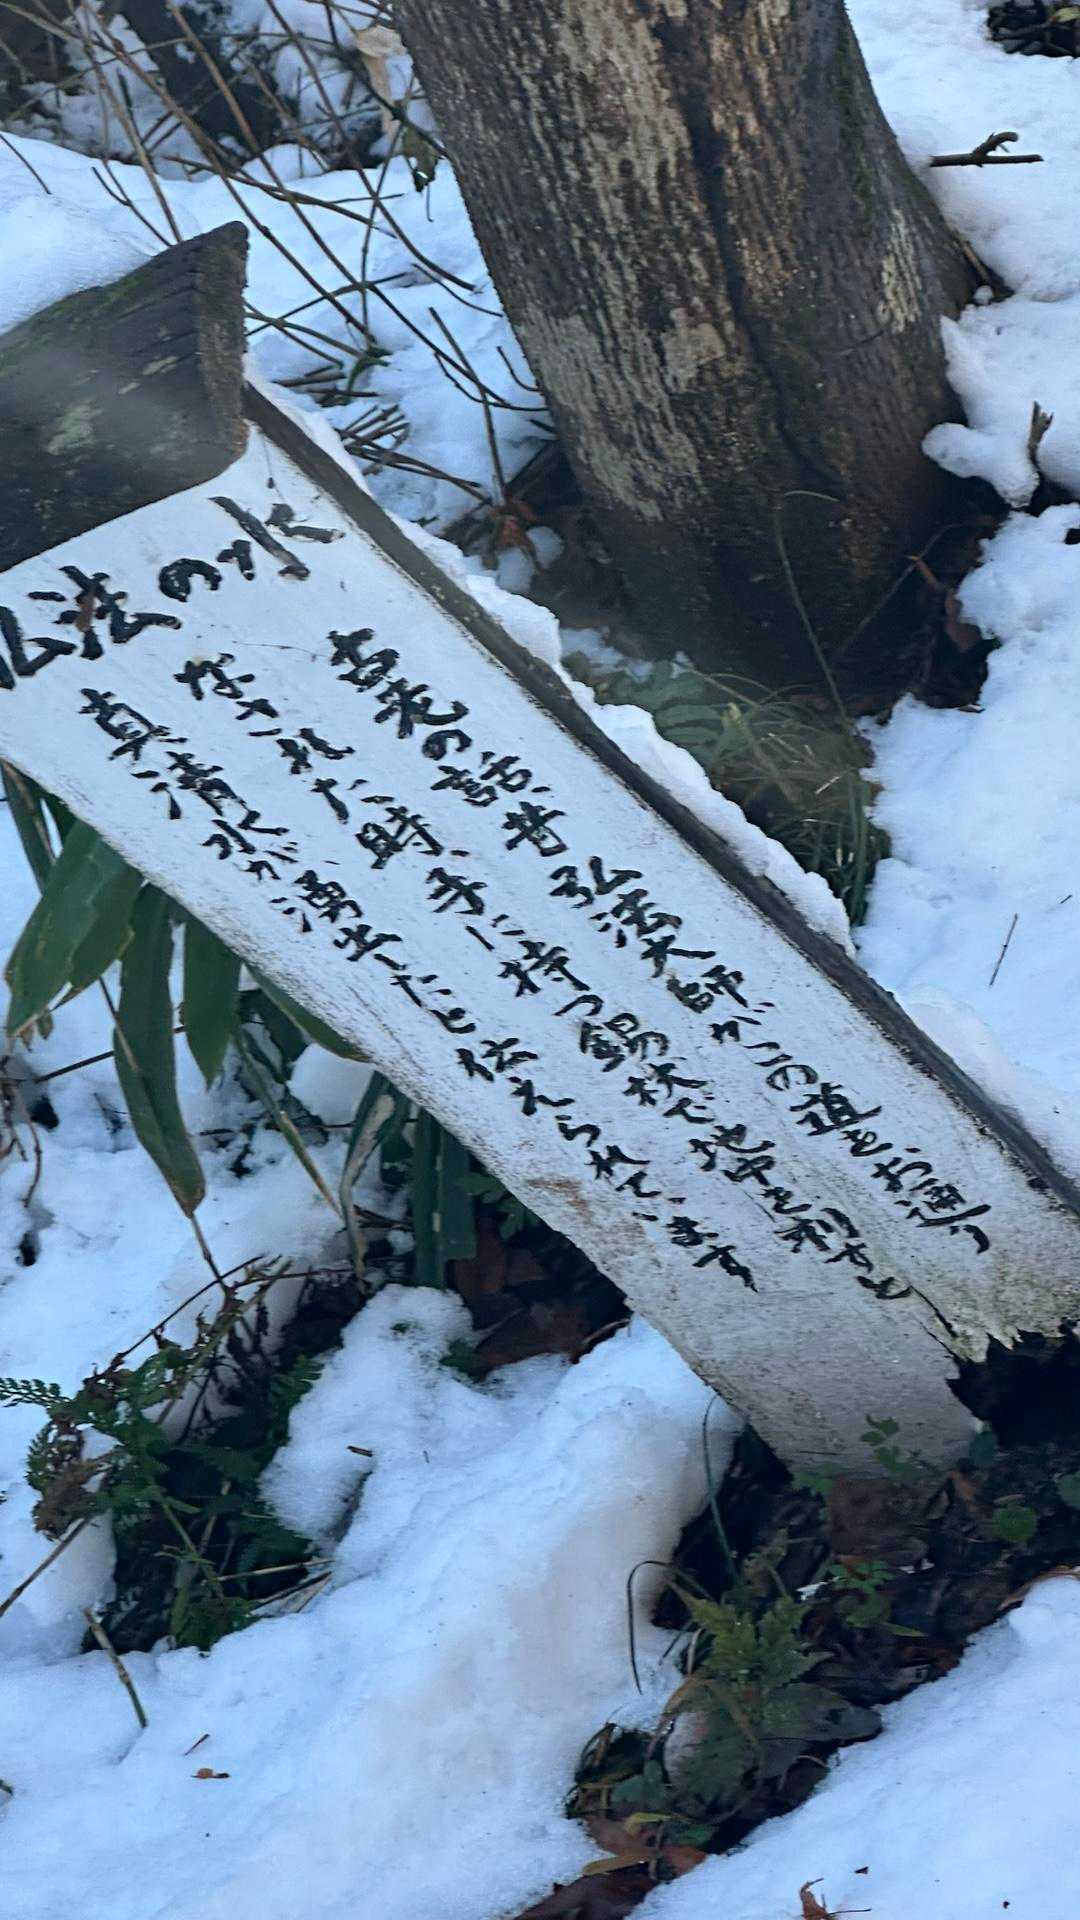 弘法の水
古老の話、昔弘法大師がこの道をお通り
なされた時、手に持つ錫杖で地中を刺すと
真清水が、湧出たと伝えられています